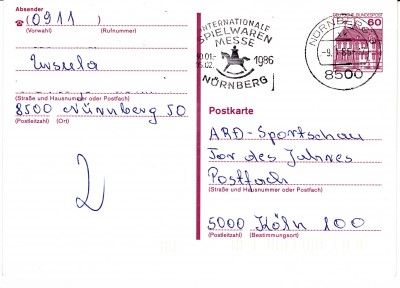 Absender
(0911)
(Vorwahl) (Rufnummer)
Ursula
(Straße und Hausnummer oder Postfach)
8500 Nürnberg 50
(Postleitzahl) (Ort)
2
INTERNATIONALE
SPIELWAREN
MESSE
1986
NÜRNBERG
NÜRNBERG
8500
DEUTSCHE BUNDESPOST
60
Postkarte
ARD-Sportschau
Tor des Jahres
Postfach
(Straße und Hausnummer oder Postfach)
5000 Köln 100
(Postleitzahl) (Bestimmungsort)